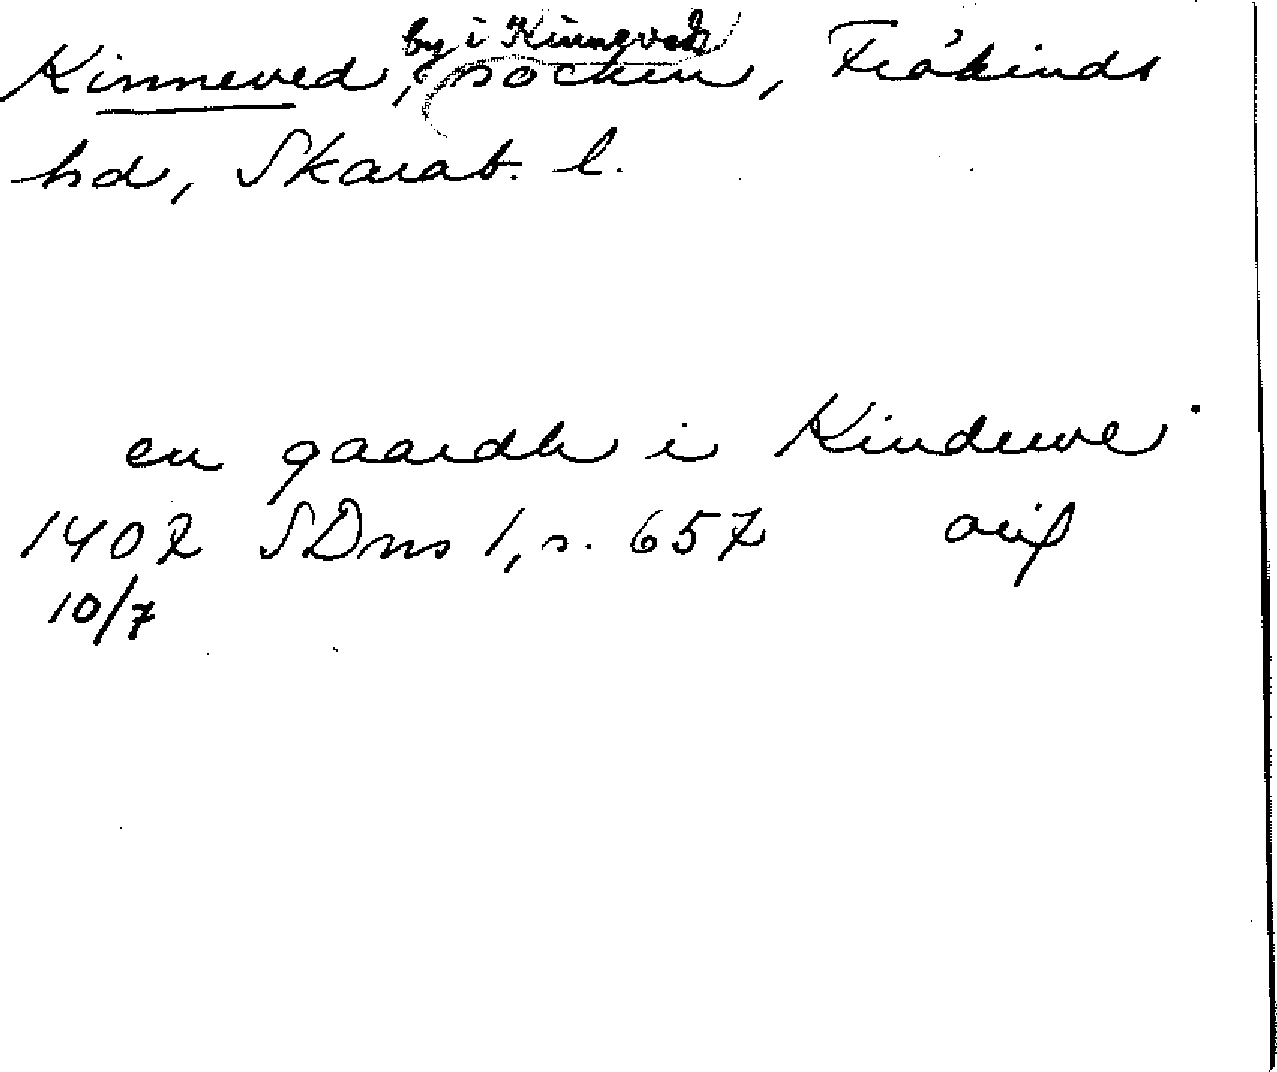 by i Kinneved
Kinneved, socken, Frökinds
hd, Skarab. l.
en gaardh i Kindewe
1402 SDns 1, s. 657 orig
10/7